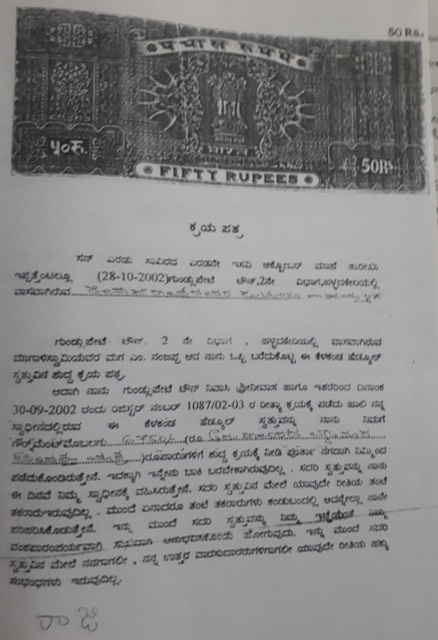 50 Rs.
पचास रुपये
५०रु.
भारत
50Rs
FIFTY RUPEES
ಕ್ರಯ ಪತ್ರ
ಸನ್ ಎರಡು ಸಾವಿರದ ಎರಡನೇ ಇಸವಿ ಅಕ್ಟೋಬರ್ ಮಾಹೆ ತಾರೀಖು
ಇಪ್ಪತ್ತೆಂಟಲ್ಲೂ (28-10-2002)ಗುಂಡ್ಲುಪೇಟೆ ಟೌನ್,2ನೇ ವಿಭಾಗ,ಹಳ್ಳದಕೇರಿಯಲ್ಲಿ
ವಾಸವಾಗಿರುವ
ಗುಂಡ್ಲುಪೇಟೆ- ಟೌನ್. 2 ನೇ ವಿಭಾಗ , ಹಳ್ಳದಕೇರಿಯಲ್ಲಿ ವಾಸವಾಗಿರುವ
ಮಾಗಾಳಿಸ್ವಾಮಿಯವರ ಮಗ ಎಂ. ನಂಜಪ್ಪ ಆದ ನಾನು ಒಪ್ಪಿ ಬರೆದುಕೊಟ್ಟ ಈ ಕೆಳಕಂಡ ಷೆಡ್ಯೂಲ್
ಸ್ವತ್ತುವಿನ ಶುದ್ಧ ಕ್ರಯ ಪತ್ರ.
ಆದಾಗಿ ನಾನು ಗುಂಡ್ಲುಪೇಟೆ ಟೌನ್ ನಿವಾಸಿ ಶ್ರೀನಿವಾಸ ಹಾಗೂ ಇತರರಿಂದ ದಿನಾಂಕ
30-09-2002 ರಂದು ರಿಜಿಸ್ಟರ್ ನಂಬರ್ 1087/02-03 ರ ರೀತ್ಯಾ ಕ್ರಯಕ್ಕೆ ಪಡೆದು ಹಾಲಿ ನನ್ನ
ಸ್ವಾಧೀನದಲ್ಲಿರುವ ಈ ಕೆಳಕಂಡ ಷೆಡ್ಯೂಲ್ ಸ್ವತ್ತುವನ್ನು ನಾನು ನಿಮಗೆ
ಗೌರ್ನ್‌ಮೆಂಟ್‌ಮೊಬಲಗು (ರೂ
)ರೂಪಾಯಿಗಳಿಗೆ ಶುದ್ಧ ಕ್ರಯಕ್ಕೆ ನೀಡಿ ಪೂರ್ತಾ ನಗದಾಗಿ ನಿಮ್ಮಿಂದ
ಪಡೆದುಕೊಂಡಿರುತ್ತೇನೆ. ಇದಕ್ಕಾಗಿ ಇನ್ನೇನು ಬಾಕಿ ಬರಬೇಕಾಗಿರುವುದಿಲ್ಲ . ಸದರಿ ಸ್ವತ್ತುವನ್ನು ನಾನು
ಈ ದಿನವೆ ನಿಮ್ಮ ಸ್ವಾಧೀನಕ್ಕೆ ವಹಿಸಿರುತ್ತೇನೆ. ಸದರಿ ಸ್ವತ್ತುವಿನ ಮೇಲೆ ಯಾವುದೇ ರೀತಿಯ ತಂಟೆ
ತಕರಾರುಇರುವುದಿಲ್ಲ . ಮುಂದೆ ಏನಾದರೂ ತಂಟೆ ತಕರಾರುಗಳು ಕಂಡುಬಂದಲ್ಲಿ ಅದನ್ನೆಲ್ಲಾ ನಾನೇ
ಪರಿಹರಿಸಿಕೊಡುತ್ತೇನೆ. ಇನ್ನು ಮುಂದೆ ಸದರಿ ಸ್ವತ್ತುವನ್ನು ನಿಮ್ಮ
ವಂಶಪಾರಂಪರ್ಯವಾಗಿ ಸುಖವಾಗಿ ಅನುಭವಿಸಿಕೊಂಡು ಹೋಗುವುದು. ಇನ್ನು ಮುಂದೆ ಸದರಿ
ಸ್ವತ್ತುವಿನ ಮೇಲೆ ನನಗಾಗಲೀ , ನನ್ನ ಉತ್ತರ ವಾರಸುದಾರರುಗಳಿಗಾಗಲೀ ಯಾವುದೇ ರೀತಿಯ ಹಕ್ಕು
ಸಂಭಂಧಗಳು ಇರುವುದಿಲ್ಲ.